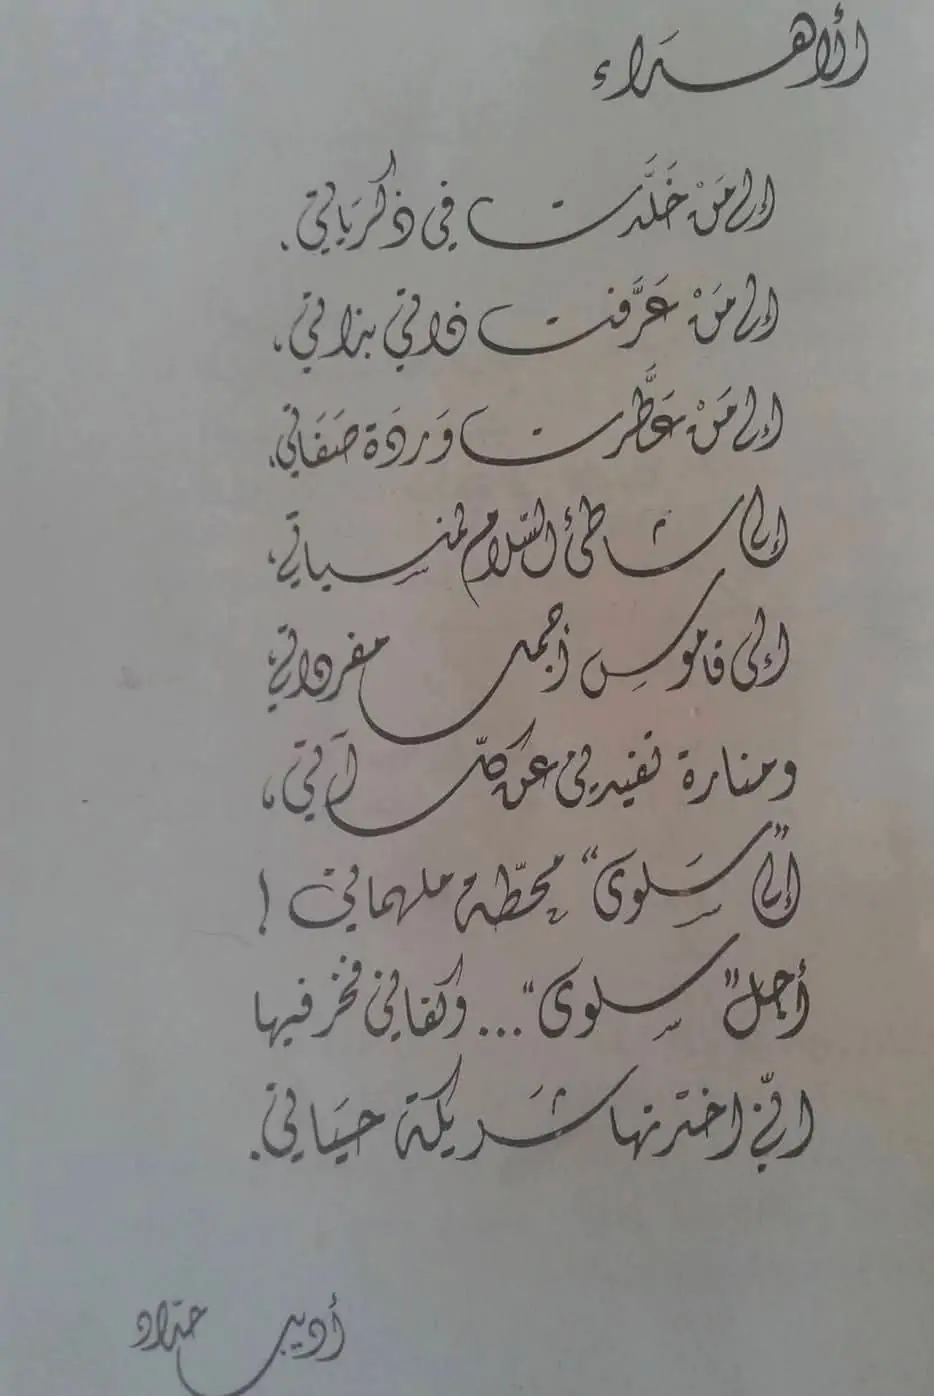 الأهداء
إلى مَنْ خَلَّدت في ذكرَياتي.
إلى مَنْ عَرَّفت ذاتي بذاتي،
إلى مَنْ عَطَّرت وَردَة صَفَاتي،
إلى شاطئ السّلام لمنسياتي،
إلى قاموسِ أجمل مفرداتي
ومنارة تفيدني عن كلّ آتي،
إلى "سَلوى" محَطّة ملهماتي!
أجل "سلوى"... وكفاني فخر فيها
انّي اخترتها شَريكة حيَاتي.
أديب حدّاد